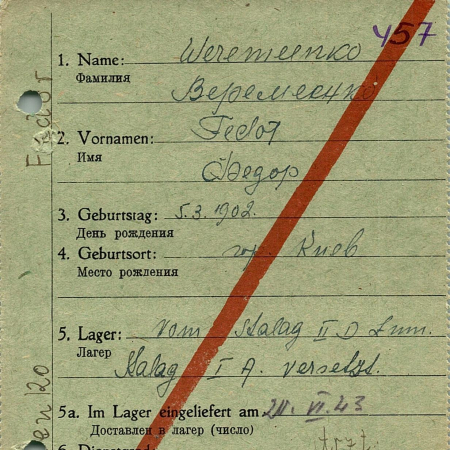 457
1. Name: Weremeenko
Фамилия Веремеенко
2. Vornamen: Fedor
Имя Федор
3. Geburtstag: 5.3.1902.
День рождения
4. Geburtsort: гор. Киев
Место рождения
5. Lager: vom Stalag II D zum
Лагер Stalag I A. versetzt.
5a. Im Lager eingeliefert am VI.43
Доставлен в лагер (число)
6. Dienstgrad: